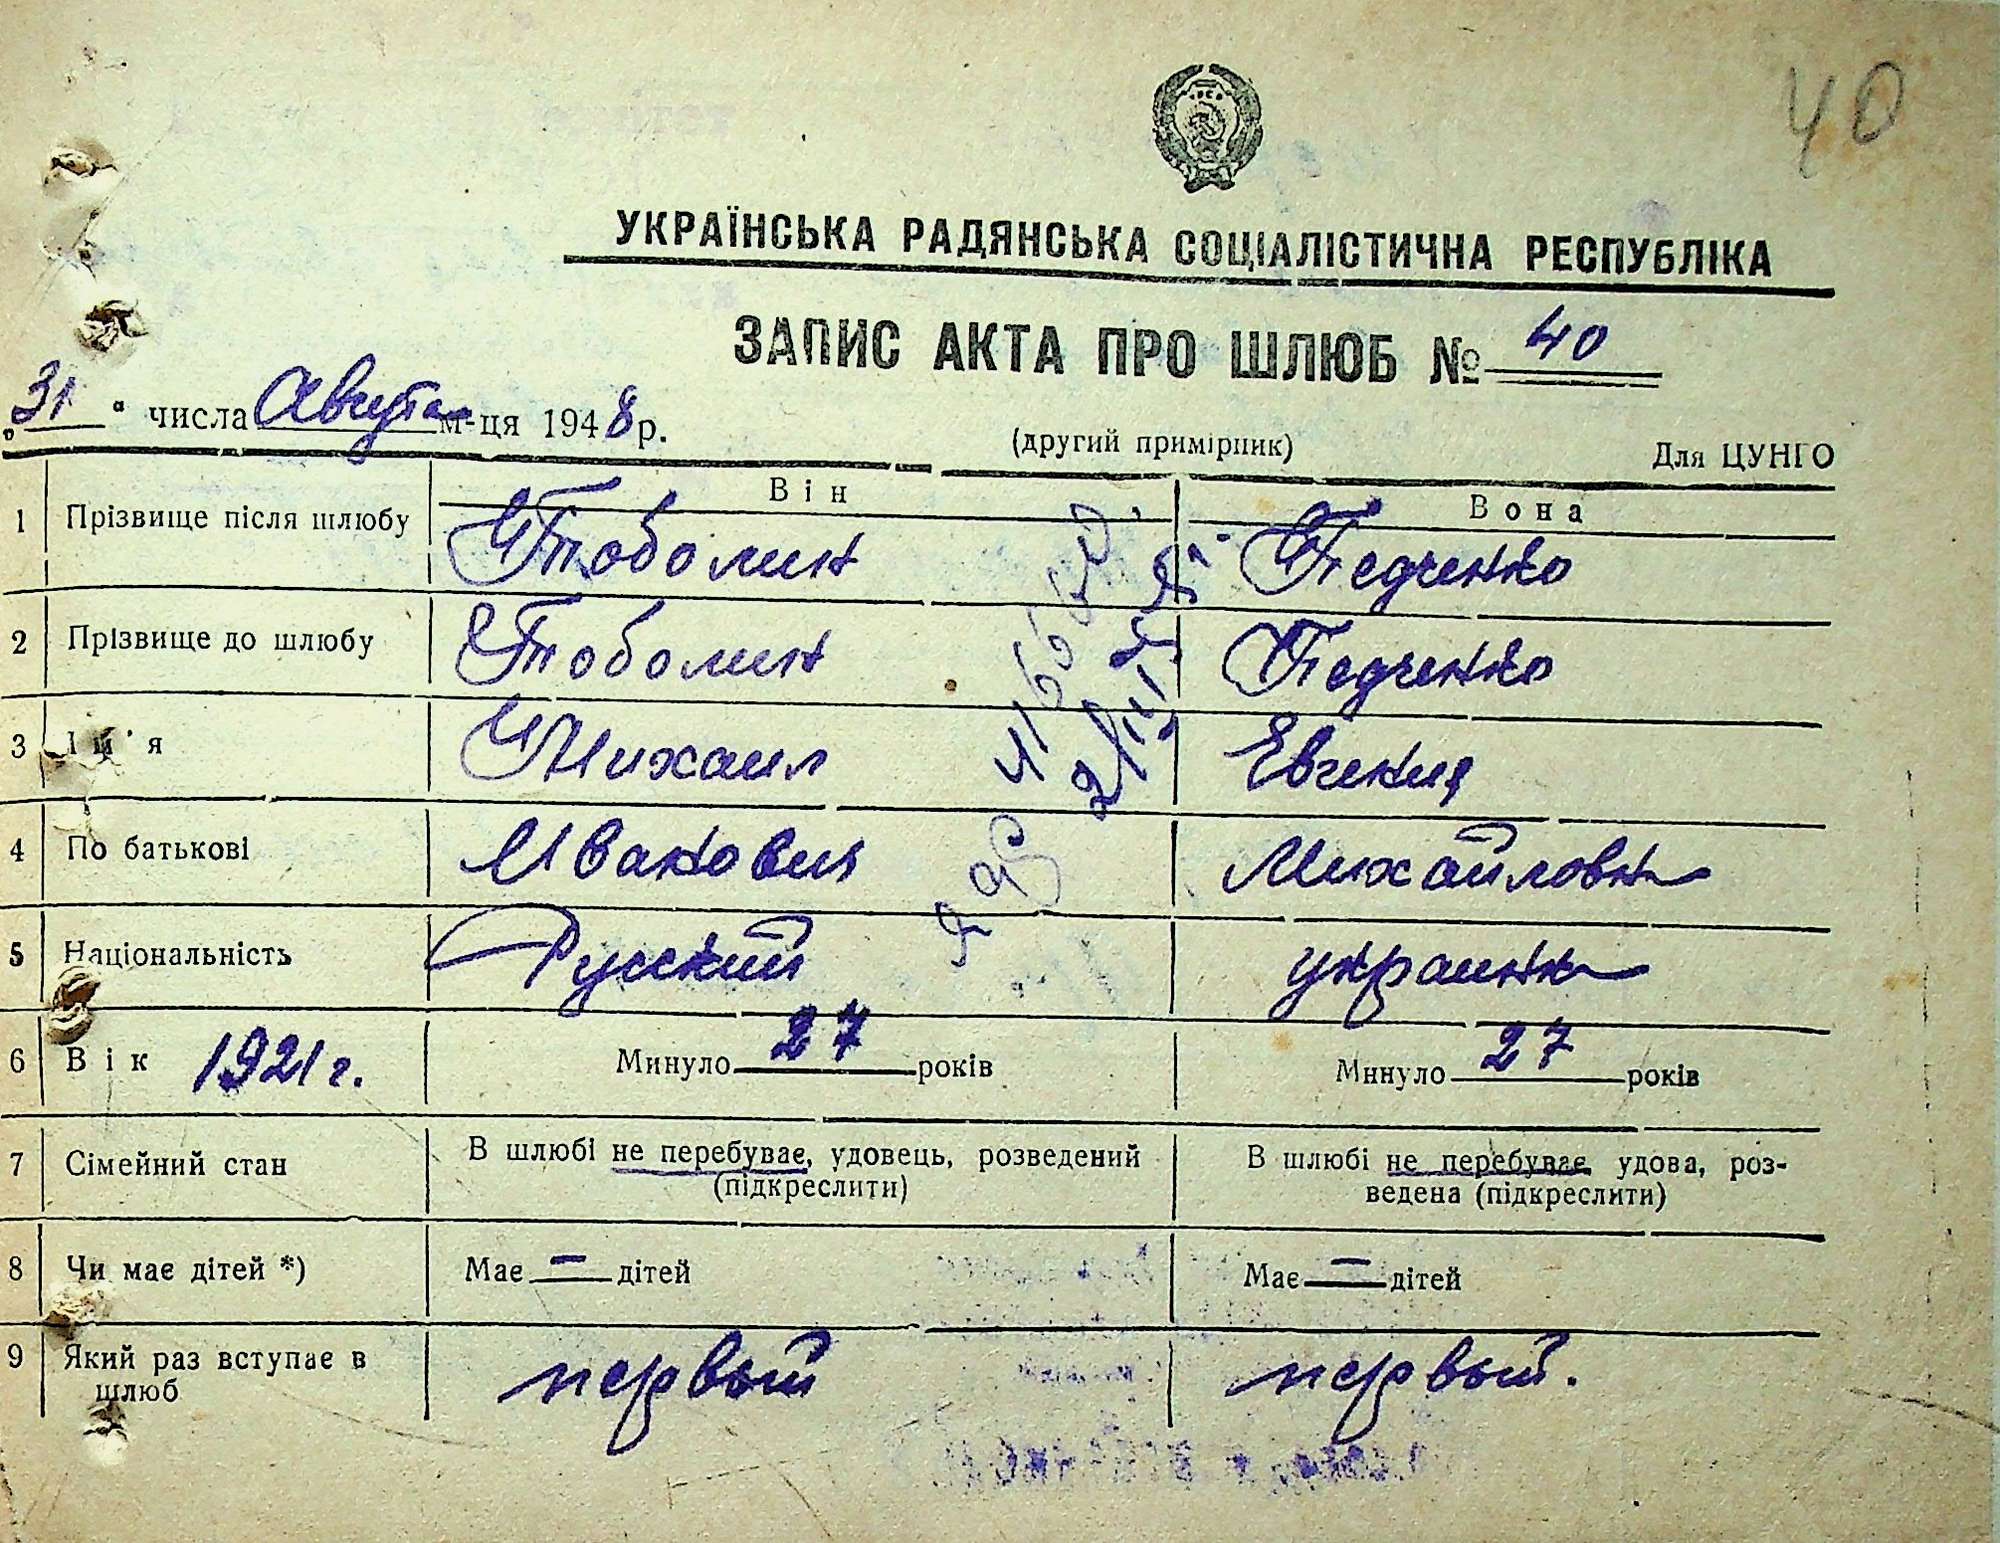 40
УКРАЇНСЬКА РАДЯНСЬКА СОЦІАЛІСТИЧНА РЕСПУБЛІКА
ЗАПИС АКТА ПРО ШЛЮБ № 40
„31“ числа Августа м-ця 1948 р.
(другий примірник) Для ЦУНГО
Він Вона
1 Прізвище після шлюбу Тоболин Педченко
2 Прізвище до шлюбу Тоболин Педченко
3 Ім'я Михаил Евгения
4 По батькові Иванович Михайловн
5 Національність Русский украинк
6 Вік 1921 г. Минуло 27 років Минуло 27 років
7 Сімейний стан В шлюбі не перебуває, удовець, розведений (підкреслити) В шлюбі не перебуває, удова, роз-
ведена (підкреслити)
8 Чи має дітей *) Має — дітей Має — дітей
9 Який раз вступає в шлюб первый первый.